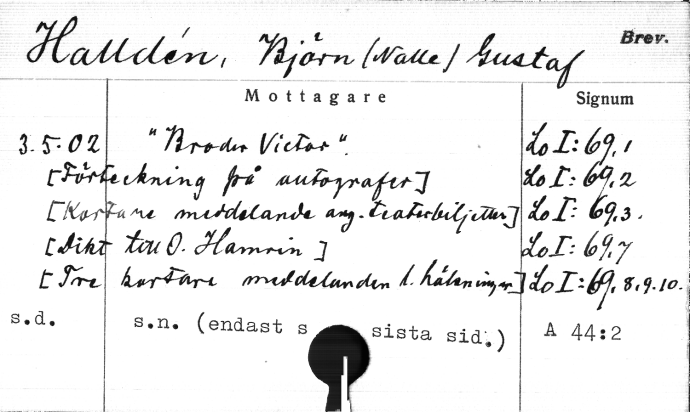 Halldén, Björn (Nalle) Gustaf Brev.
Mottagare Signum
3.5.02 "Broder Victor". Lo I: 69,1
[Förteckning på autografer] Lo I: 69,2
[Kortare meddelande ang. teaterbiljetter] Lo I: 69,3.
[Dikt till O. Hamrin] Lo I: 69,7
[Tre kortare meddelanden l. hälsningar] Lo I: 69,8.9.10.
s.d. s.n. (endast s sista sid.) A 44:2